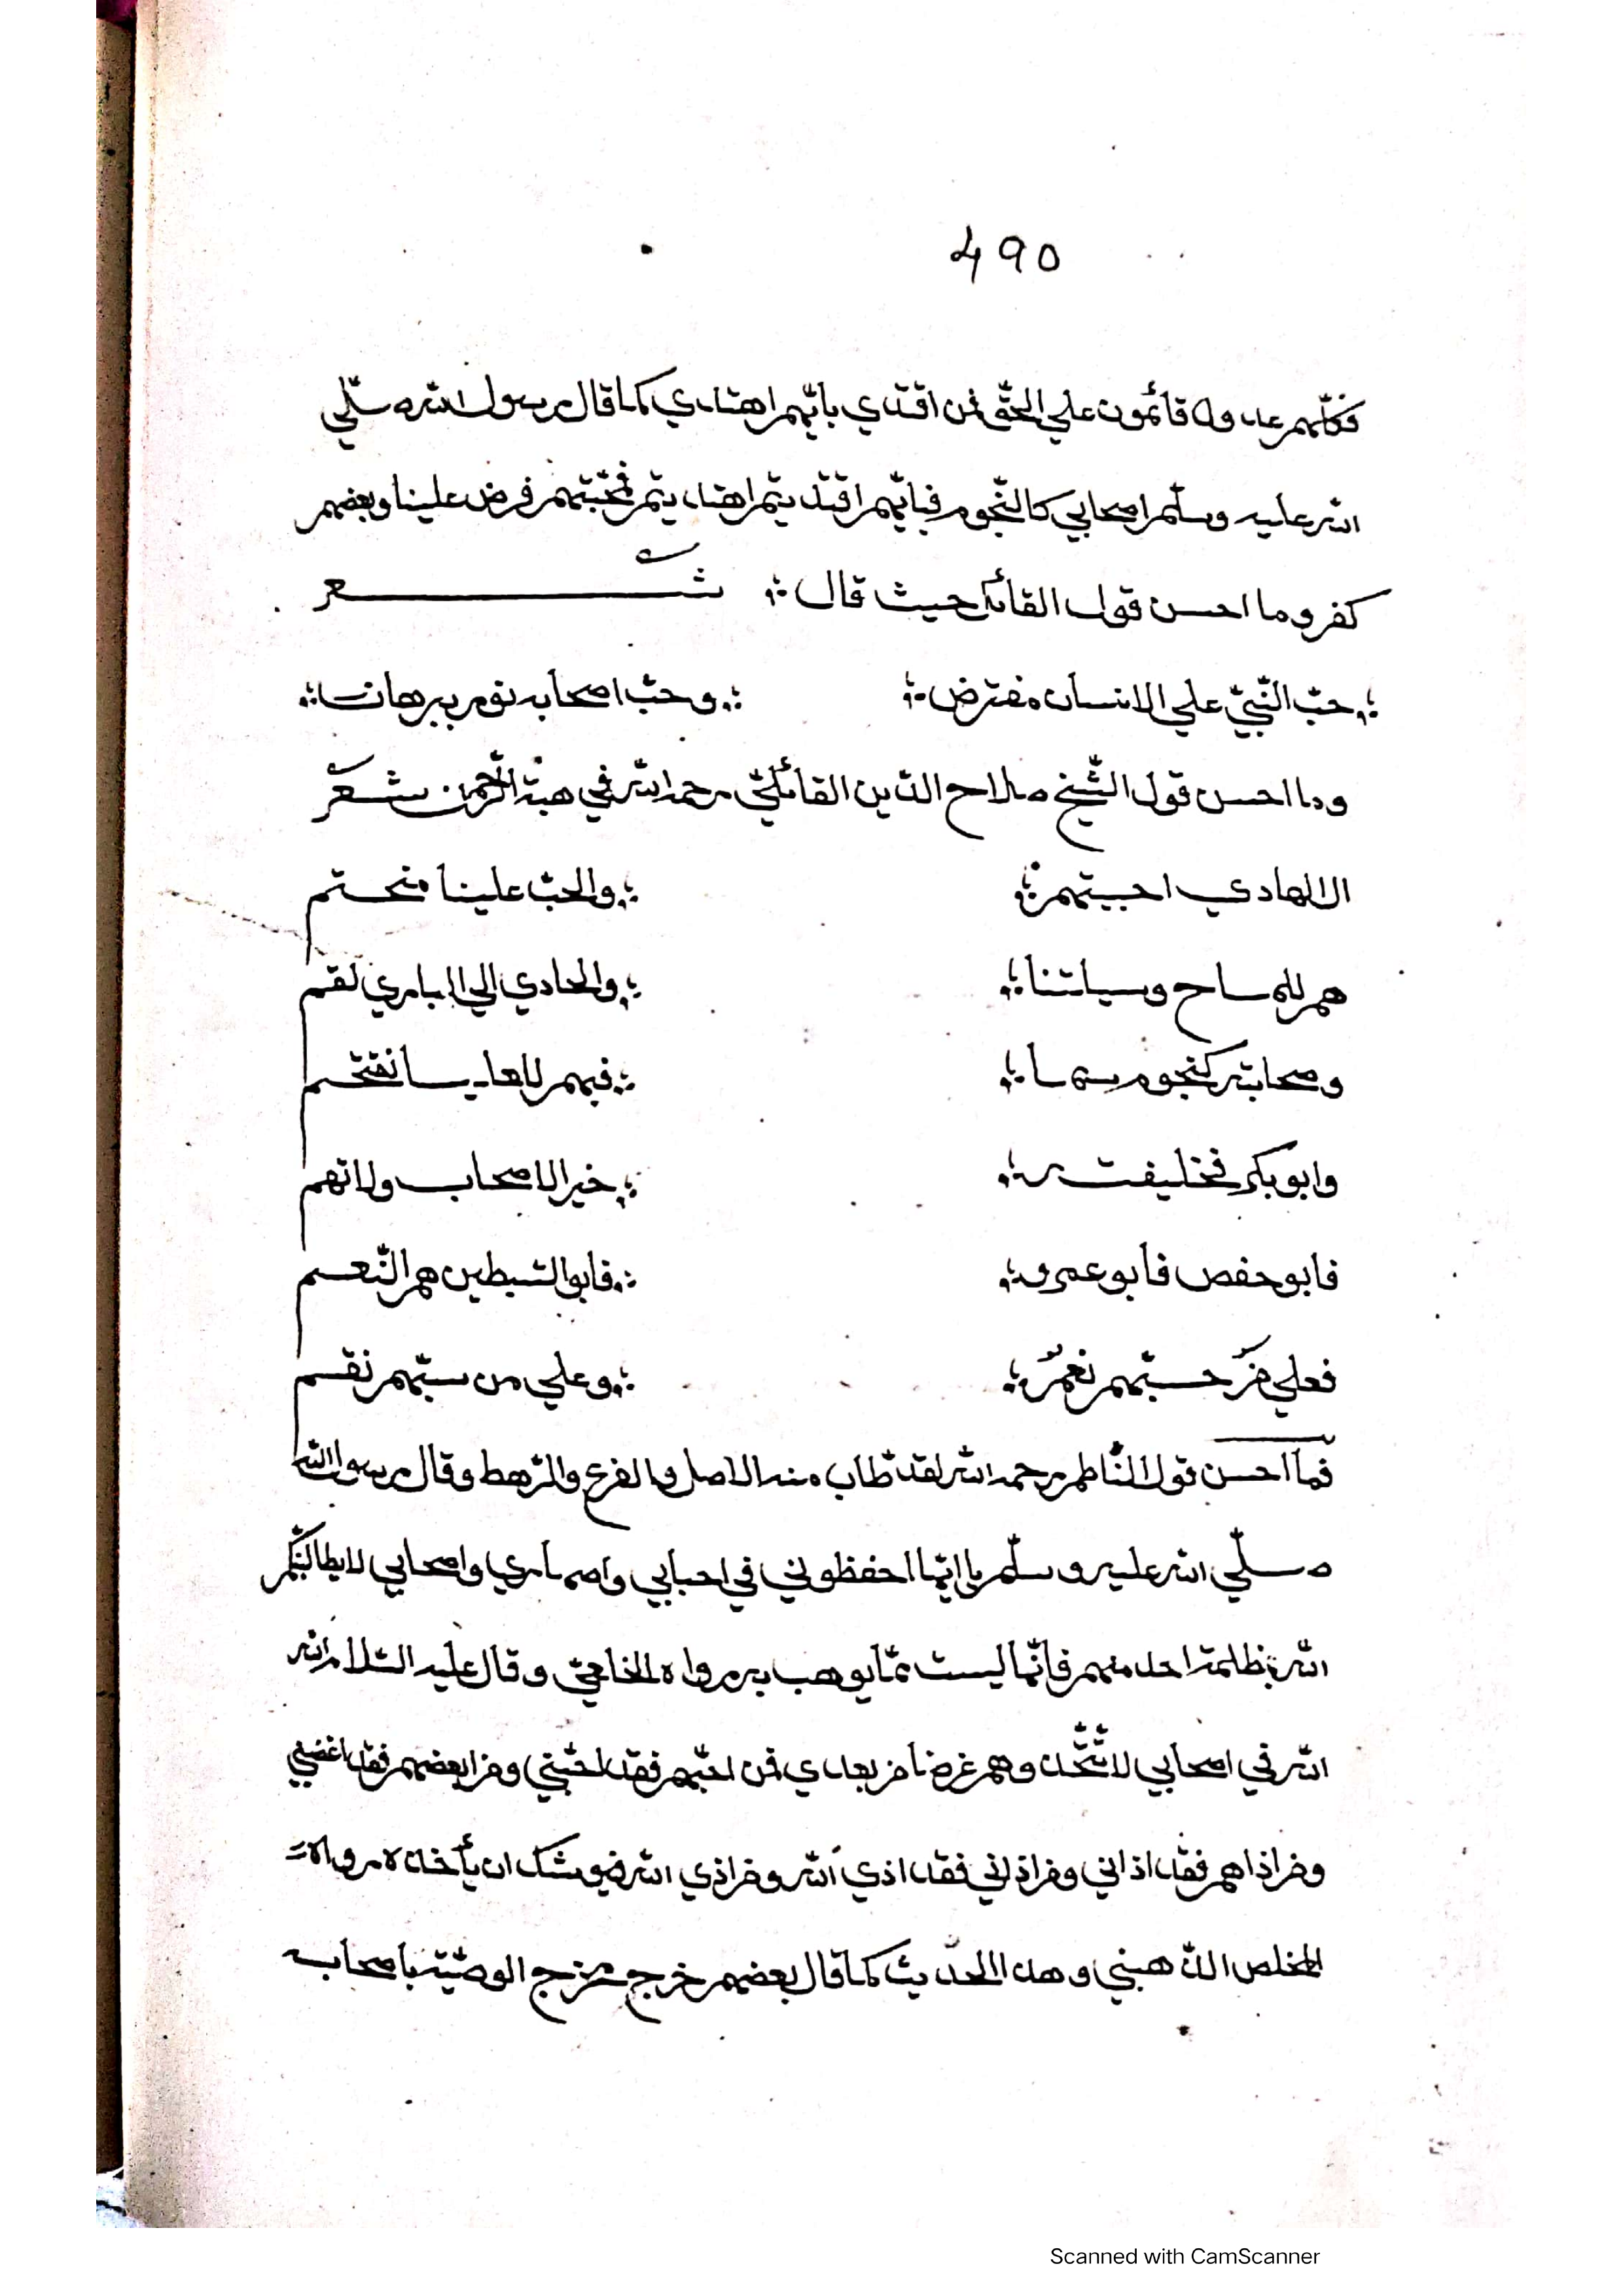 490
فكلّهم عدول قائمون علي الحقّ فمن اقتدي بايّهم اهتدي كما قال رسول الله صلّي
الله عليه وسلّم اصحابي كالنّجوم فبايّهم اقتديتم اهتديتم فمحبّتهم فرض علينا وبغضهم
كفر وما احسن قول القائل حيث قال شعر
حبّ النّبيّ علي الانسان مفترض وحبّ اصحابه نور ببرهان
وما احسن قول الشّيخ صلاح الدّين القائليّ رحمه الله في هبة الرّحمن شعر
الال الهادي احببتهم والحبّ علينا منحتم
هم للمداح وسيلتنا والحادي الي الباري لقم
وصحابته كنجوم سما فبهم للعليا نقتحم
وابو بكر فخليفته خير الاصحاب ولاتهم
فابو حفص فابو عمرو فابو السّبطين هم النّعم
فعلي من حبّهم نعم وعلي من سبّهم نقم
فما احسن قول النّاظم رحمه الله لقد طاب منه الاصل والفرع والرّهط وقال رسول الله
صلّي الله عليه وسلّم يا ايّها احفظوني في احبابي واصهاري واصحابي لا يطالبنّكم
الله بظلمة احد منهم فانّها ليست ممّا يوهب به رواه الخلعيّ وقال عليه السّلام الله
الله في اصحابي لا تتّخذوهم غرضا من بعدي فمن احبّهم فقد احبّني ومن ابغضهم فقد ابغضني
ومن اذاهم فقد اذاني ومن اذاني فقد اذي الله ومن اذي الله فيوشك ان يأخذه رواه
المخلص الذّهبيّ وهذا الحديث كما قال بعضهم خرج مخرج الوصيّة باصحابه
Scanned with CamScanner